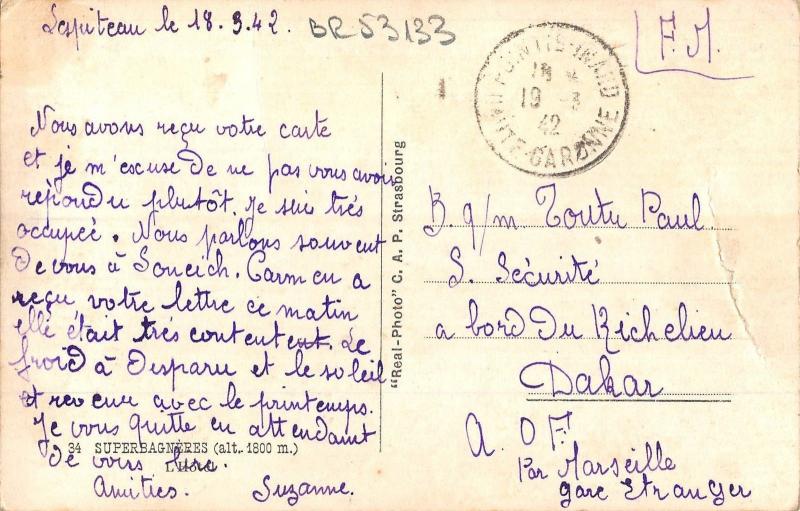 Lespiteau le 18.3.42.
BR53133
F.M.
PONTIS-INARD
18
19 - 3
42
HTE-GARONNE
Nous avons reçu votre carte
et je m'escuse de ne pas vous avoir
répondu plutôt. Je suis trés
occupée. Nous parlons souvent
de vous à Soueich. Carmen a
reçu votre lettre ce matin
elle était trés content. Le
froid à disparu et le soleil
et revenu avec le printemps.
Je vous quitte en attendant
de vous lire.
Amitiés. Suzanne.
34 SUPERBAGNÈRES (alt. 1800 m.)
"Real-Photo" C. A. P. Strasbourg
B. q/m Toutu Paul
S. Sécurité
a bord Du Richelieu
Dakar
A. O F.
Par Marseille
gare Etranger